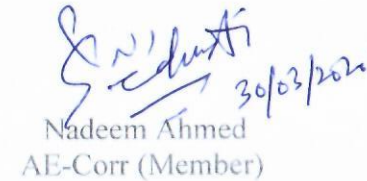 30/03/2020
Nadeem Ahmed
AE-Corr (Member)